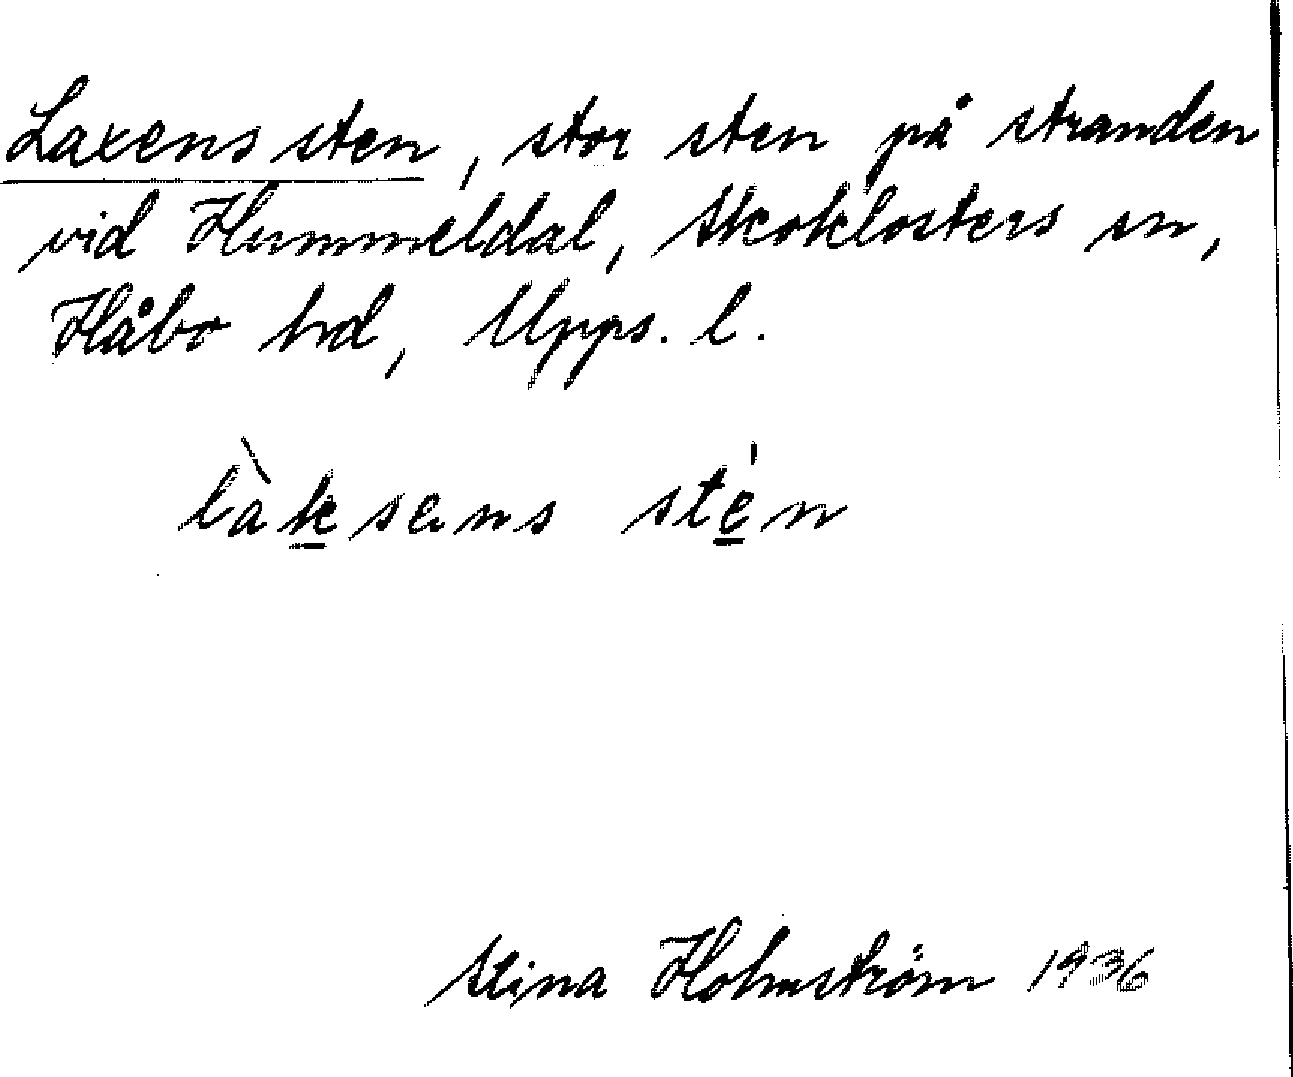 Laxens sten, stor sten på stranden
vid Hummeldal, Skoklosters sn,
Håbo hd, Upps. l.
làksens stén
Stina Holmström 1936